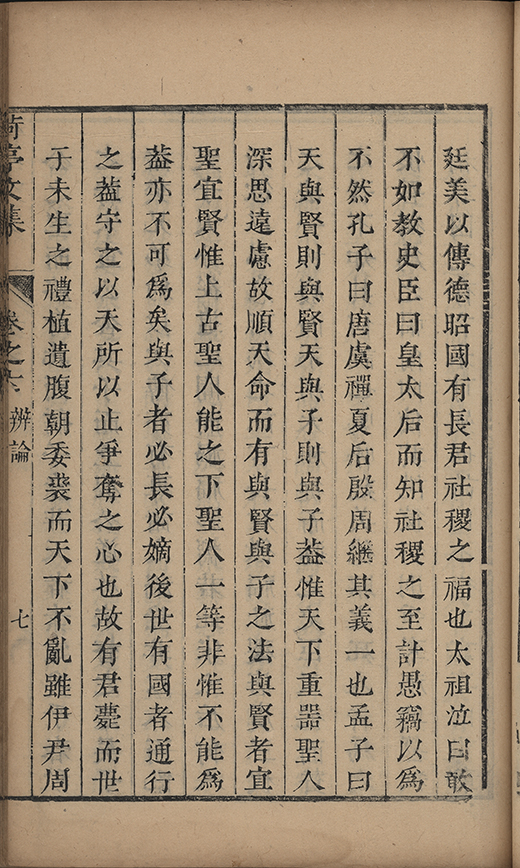 廷美以傳德昭國有長君社稷之福也太祖泣曰敢
不如教史臣曰皇太后而知社稷之至計愚竊以為
不然孔子曰唐虞禪夏后殷周繼其義一也孟子曰
天與賢則與賢天與子則與子葢惟天下重器聖人
深思遠慮故順天命而有與賢與子之法與賢者宜
聖宜賢惟上古聖人能之下聖人一等非惟不能爲
葢亦不可爲矣與子者必長必嫡後世有國者通行
之葢守之以天所以止爭奪之心也故有君薨而世
子未生之禮植遺腹朝委裘而天下不亂雖伊尹周
亭文集
卷之
辨論
七